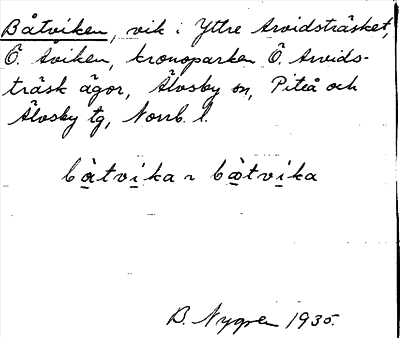 Båtviken, vik i Yttre Arvidsträsket,
Ö. Åviken, kronoparken Ö. Arvids-
träsk ägor, Älvsby sn, Piteå och
Älvsby tg, Norrb. l.
bàtvika ~ bòtvika
B. Nygren 1935.